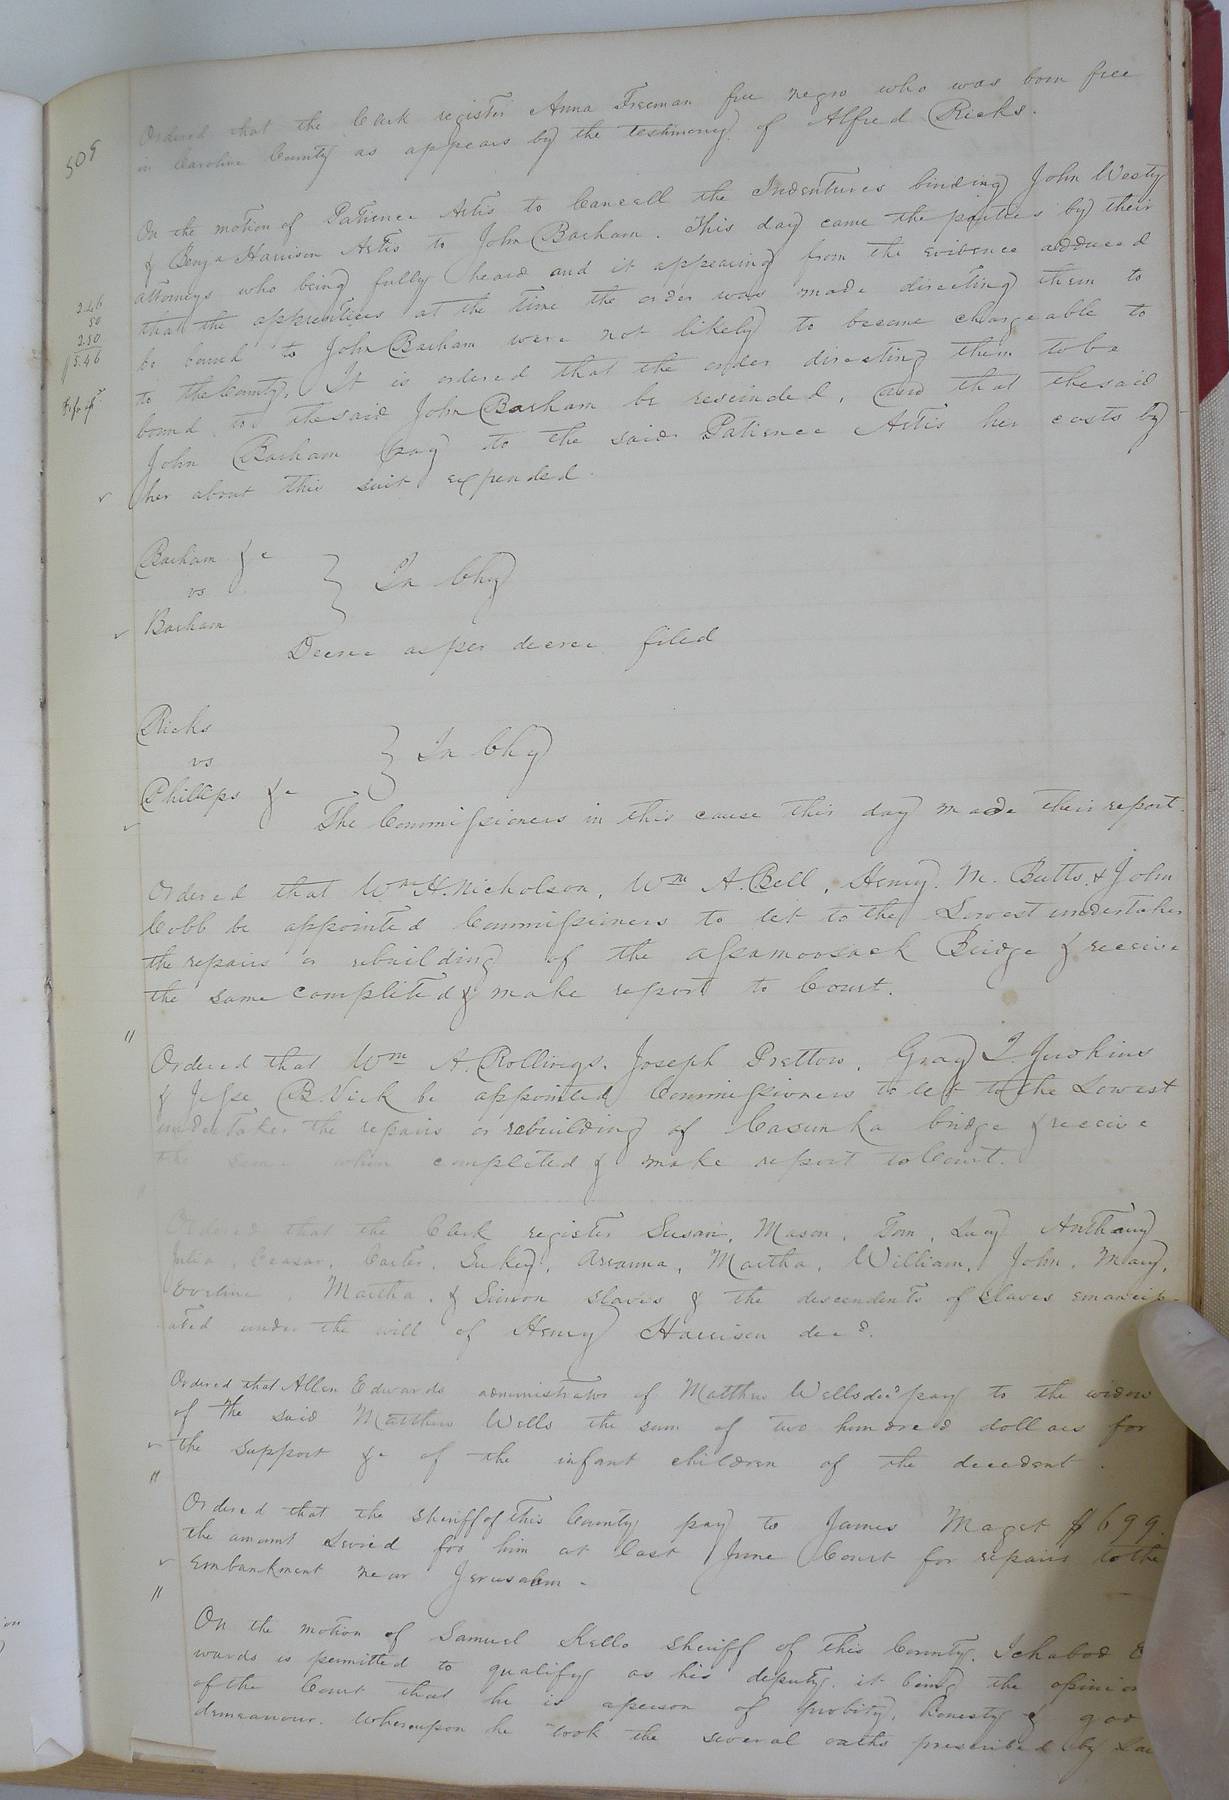 509
Ordered that the Clerk register Anna Freeman free negro who was born free
in Caroline County as appears by the testimony of Alfred Ricks.
On the motion of Patience Artis to Cancell the Indentures binding John Westly
& Benja Harrison Artis to John Barham. This day came the parties by their
attorneys who being fully heard and it appearing from the evidence adduced
that the apprentices at the time the order was made directing them to
be bound to John Barham were not likely to become chargeable to
to the County. It is ordered that the order directing them to be
bound to the said John Barham be rescinded, and that the said
John Barham pay to the said Patience Artis her costs by
her about this suit expended.
2.46
50
2.50
$5.46
Barham &c
vs
Barham
} In Chy
Decree as per decree filed
Ricks
vs
Phillips &c
} In Chy
The Commissioners in this cause this day made their report.
Ordered that Wm H. Nicholson, Wm A. Bell, Henry M. Butts, & John
Cobb be appointed Commissioners to let to the Lowest undertaker
the repairs or rebuilding of the assamoosack Bridge & receive
the same completed & make report to Court.
"
Ordered that Wm A. Rollings, Joseph Prettow, Gray T Judkins
& Jesse B. Vick be appointed Commissioners to let to the Lowest
undertaker the repairs or rebuilding of Casunka bridge & receive
the same when completed & make report to Court.
"
Ordered that the Clerk register Susan, Mason, Tom, Lucy Anthany
Julia, Ceasar, Carter, Sukey, Arianna, Martha, William, John, Mary,
Eveline, Martha, & Simon slaves & the descendents of slaves emancip-
ated under the will of Henry Harrison decd.
Ordered that Allen Edwards administrator of Matthew Wells decd pay to the widow
of the said Matthew Wells the sum of two hundred dollars for
the support &c of the infant children of the decedent.
"
Ordered that the sheriff of this County pay to James Maget $699.
the amount Levied for him at last June Court for repairs to the
Embankment near Jerusalem.
"
On the motion of Samuel Kello Sheriff of this County, Ichabod E
wards is permitted to qualify as his deputy, it being the opinion
of the Court that he is a person of probity, honesty & goo
demeanour. Whereupon he took the several oaths prescribed by Law